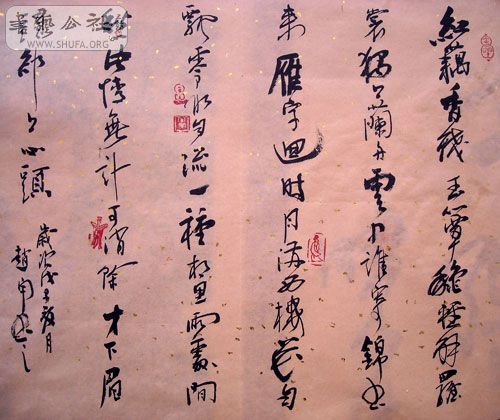 書法公社
WWW.SHUFA.ORG
紅藕香殘玉簟秋輕解羅
裳獨上蘭舟雲中誰寄錦書
來雁字迴時月滿西樓花自
飄零水自流一種相思兩處閒
愁此情無計可消除才下眉
頭卻上心頭
歲次戊子月
趙